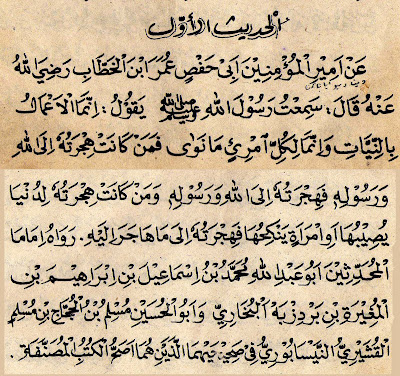 الحديث الأول
عَنْ اَمِيرِ الْمُؤْمِنِينَ اَبِى حَفْصٍ عُمَرَ ابْنِ الْخَطَّابِ رَضِيَ اللهُ
عَنْهُ قَالَ: سَمِعْتُ رَسُولَ اللهِ ﷺ يَقُولُ: اِنَّمَا الْاَعْمَالُ
بِالنِّيَّاتِ وَاِنَّمَا لِكُلِّ امْرِئٍ مَا نَوٰى فَمَنْ كَانَتْ هِجْرَتُهُ اِلَى اللهِ
وَرَسُولِهِ فَهِجْرَتُهُ اِلَى اللهِ وَرَسُولِهِ وَمَنْ كَانَتْ هِجْرَتُهُ لِدُنْيَا
يُصِيبُهَا اَوِ امْرَاَةٍ يَنْكِحُهَا فَهِجْرَتُهُ اِلَى مَا هَاجَرَ اِلَيْهِ. رَوَاهُ اِمَامَا
الْمُحَدِّثِينَ اَبُو عَبْدِ اللهِ مُحَمَّدُ بْنُ اِسْمَاعِيلَ بْنِ اِبْرَاهِيمَ بْنِ
الْمُغِيرَةِ بْنِ بَرْدِزْبَهْ الْبُخَارِيُّ وَاَبُو الْحُسَيْنِ مُسْلِمُ بْنُ الْحَجَّاجِ بْنِ مُسْلِمٍ
الْقُشَيْرِيُّ النَّيْسَابُورِيُّ فِى صَحِيحَيْهِمَا الَّذَيْنِ هُمَا اَصَحُّ الْكُتُبِ الْمُصَنَّفَةِ.